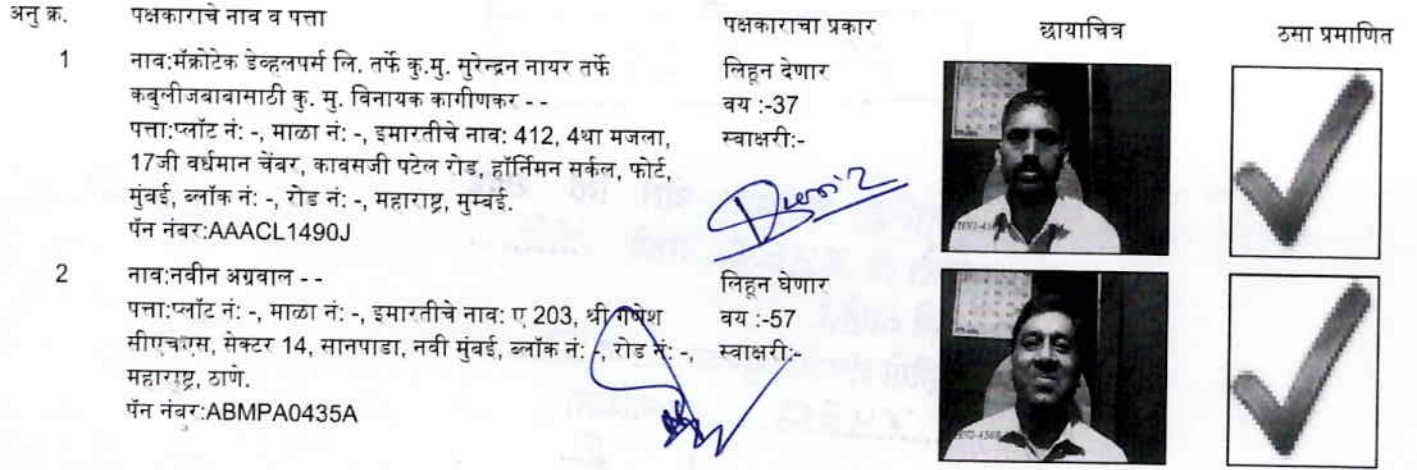 अनु क्र. पक्षकाराचे नाव व पत्ता पक्षकाराचा प्रकार छायाचित्र ठसा प्रमाणित
1 नाव:मॅक्रोटेक डेव्हलपर्स लि. तर्फे कु.मु. सुरेन्द्रन नायर तर्फे
कबुलीजबाबासाठी कु. मु. विनायक कागीणकर - -
पत्ता:प्लॉट नं: -, माळा नं: -, इमारतीचे नाव: 412, 4था मजला,
17जी वर्धमान चेंबर, कावसजी पटेल रोड, हॉर्निमन सर्कल, फोर्ट,
मुंबई, ब्लॉक नं: -, रोड नं: -, महाराष्ट्र, मुम्बई.
पॅन नंबर:AAACL1490J
लिहून देणार
वय :-37
स्वाक्षरी:-
2 नाव:नवीन अग्रवाल - -
पत्ता:प्लॉट नं: -, माळा नं: -, इमारतीचे नाव: ए 203, श्री गणेश
सीएचएस, सेक्टर 14, सानपाडा, नवी मुंबई, ब्लॉक नं: -, रोड नं: -,
महाराष्ट्र, ठाणे.
पॅन नंबर:ABMPA0435A
लिहून घेणार
वय :-57
स्वाक्षरी:-